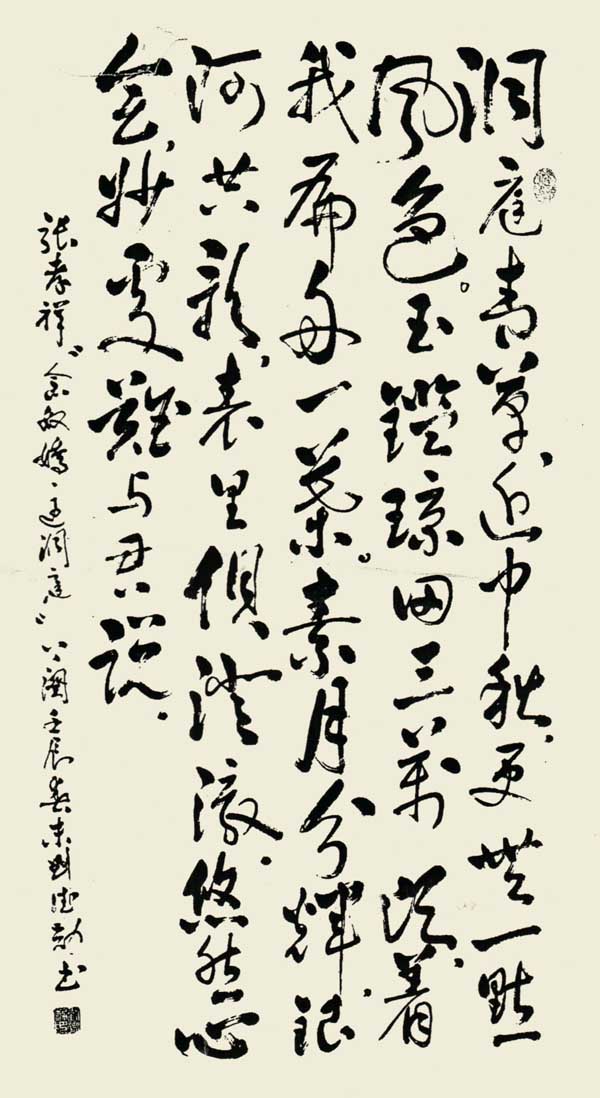 洞庭青草、近中秋、更無一點
風色。玉鑑瓊田三萬頃、着
我扁舟一葉。素月分輝、銀
河共影、表里俱澄澈。悠然心
會、妙處難与君説。
張孝祥《念奴嬌·過洞庭》上闋壬辰春末書